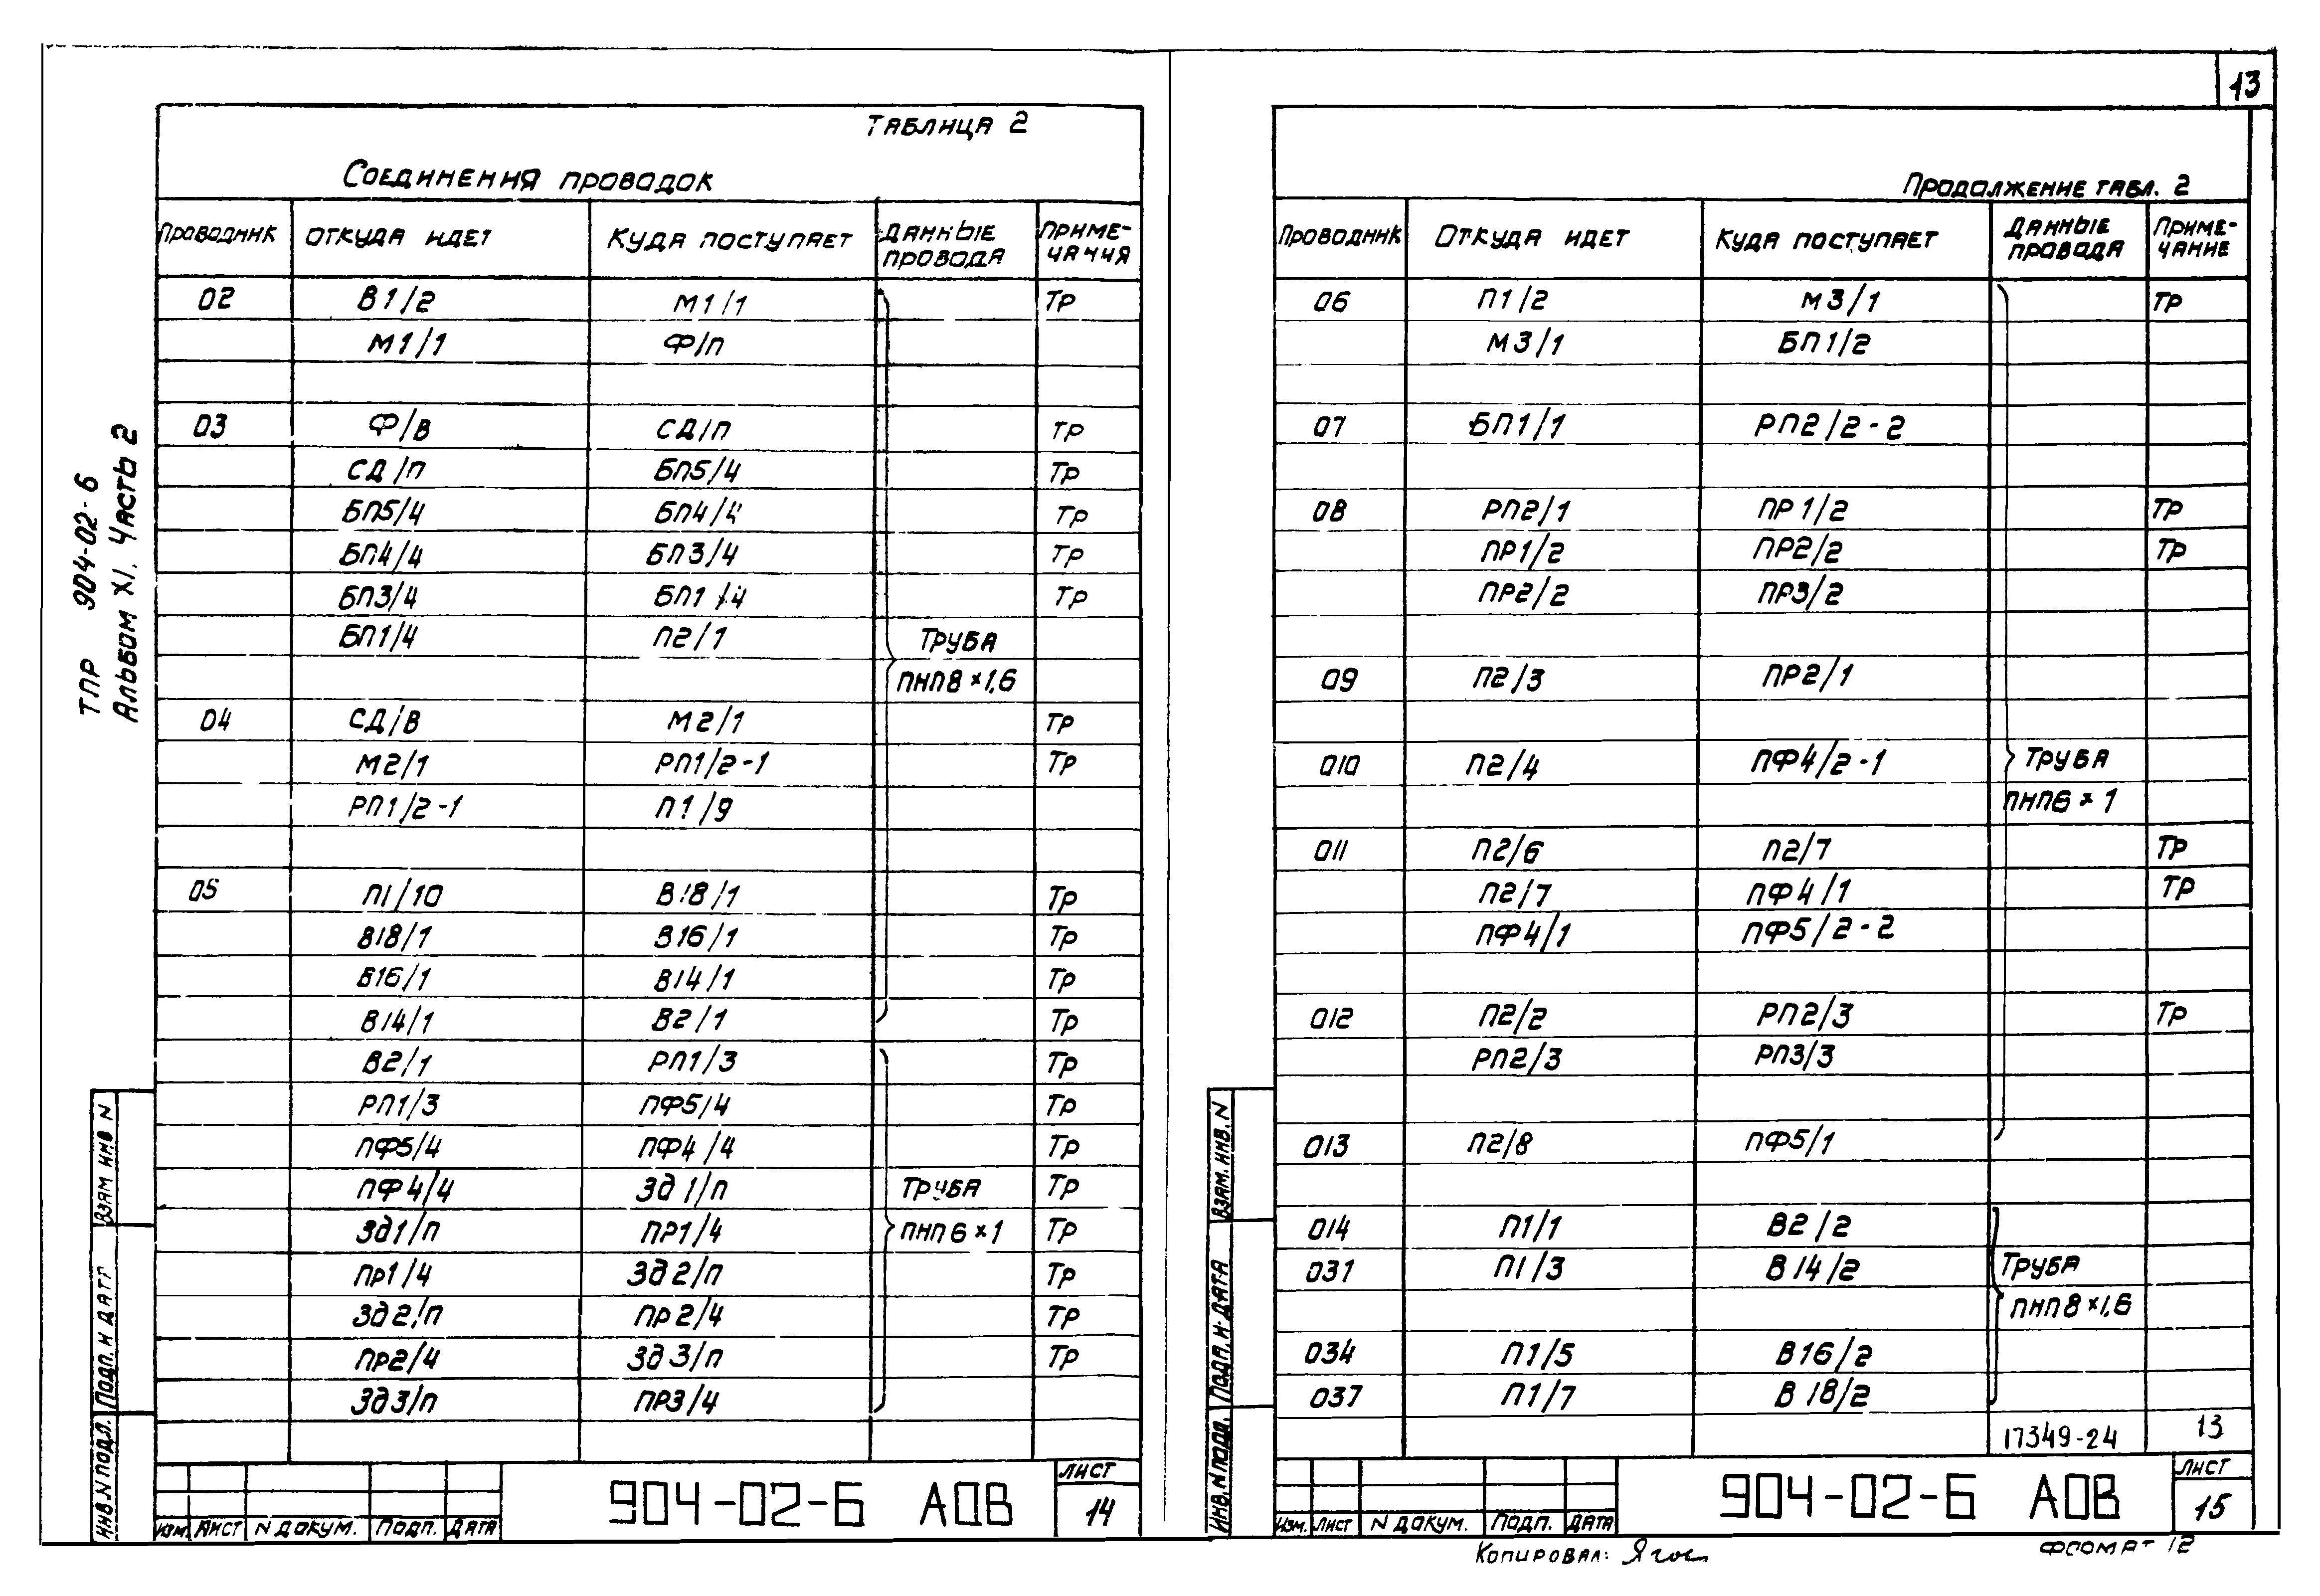 13
ТПР 904-02-6
Альбом XI. Часть 2
Таблица 2
Соединения проводок
Проводник Откуда идет Куда поступает Данные провода Примечания
02 В1/2 М1/1 Тр
М1/1 Ф/п
03 Ф/В СД/П Тр
СД/П БП5/4 Тр
БП5/4 БП4/4 Тр
БП4/4 БП3/4 Тр
БП3/4 БП1/4 Тр
БП1/4 П2/1 Труба
ПНП8×1,6
04 СД/В М2/1 Тр
М2/1 РП1/2-1 Тр
РП1/2-1 П1/9
05 П1/10 В18/1 Тр
В18/1 В16/1 Тр
В16/1 В14/1 Тр
В14/1 В2/1 Тр
В2/1 РП1/3 Тр
РП1/3 ПФ5/4 Тр
ПФ5/4 ПФ4/4 Тр
ПФ4/4 Зд1/п Труба Тр
Зд1/п ПР1/4 ПНП6×1 Тр
Пр1/4 Зд2/п Тр
Зд2/п Пр2/4 Тр
Пр2/4 Зд3/п Тр
Зд3/п ПР3/4
Взам инв N
Подп. и дата
Инв N подл.
Изм. Лист N докум. Подп. Дата
904-02-6 АОВ
Лист
14
Продолжение табл. 2
Проводник Откуда идет Куда поступает Данные провода Примечание
06 П1/2 М3/1 Тр
М3/1 БП1/2
07 БП1/1 РП2/2-2
08 РП2/1 ПР1/2 Тр
ПР1/2 ПР2/2 Тр
ПР2/2 ПР3/2
09 П2/3 ПР2/1
010 П2/4 ПФ4/2-1 Труба
ПНП6×1
011 П2/6 П2/7 Тр
П2/7 ПФ4/1 Тр
ПФ4/1 ПФ5/2-2
012 П2/2 РП2/3 Тр
РП2/3 РП3/3
013 П2/8 ПФ5/1
014 П1/1 В2/2
031 П1/3 В14/2 Труба
ПНП8×1,6
034 П1/5 В16/2
037 П1/7 В18/2
17349-24 13
Взам. инв. N
Подп. и дата
Инв. N подл.
Изм. Лист N докум. Подп. Дата
904-02-6 АОВ
Лист
15
Копировал:
Формат 12